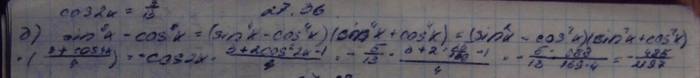 cos2x = 5/13 27.36
б) sin⁸x - cos⁸x = (sin⁴x - cos⁴x)(sin⁴x + cos⁴x) = (sin²x - cos²x)(sin⁴x + cos⁴x)
· (3 + cos4x / 4) = -cos2x · 3 + 2cos²2x - 1 / 4 = - 5/13 · / 4 = - / 169·4 = - / 2197